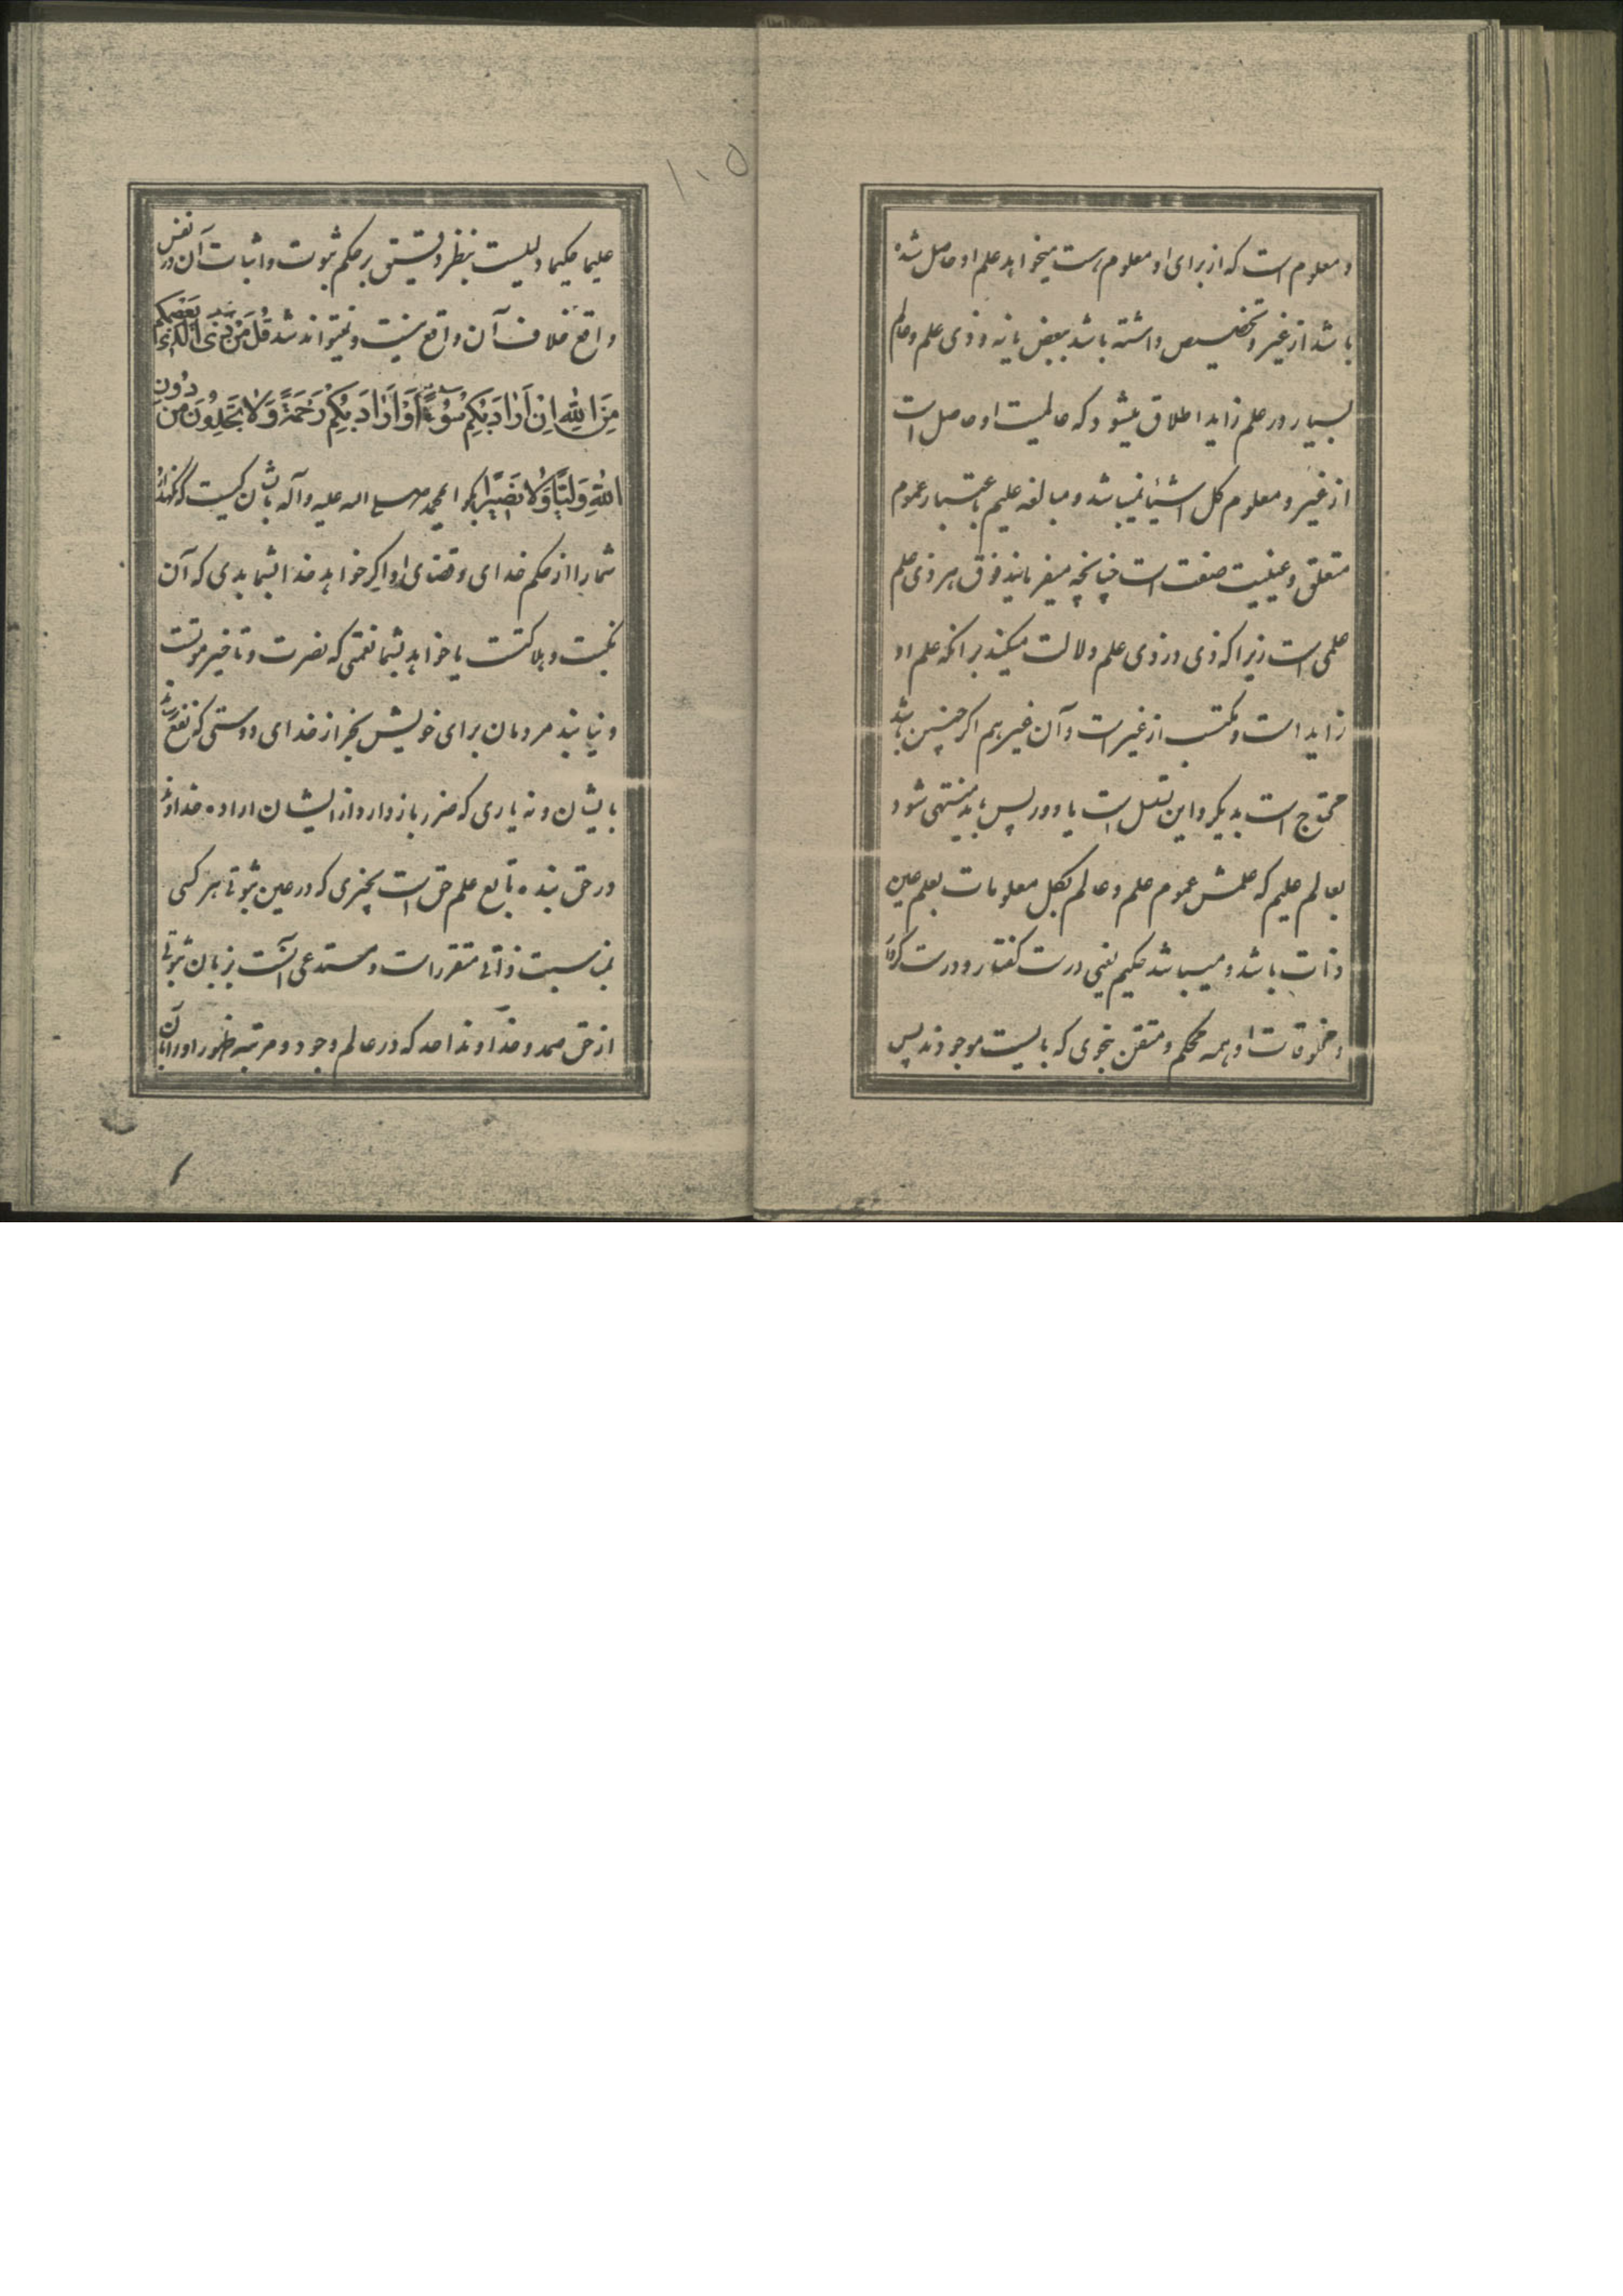 و معلوم است که از برای او معلوم هست میخواهد علم او حاصل شده
باشد از غیر و تخصیص داشته باشد ببعض یا نه و ذی علم و عالم
بسیار در علم زاید اطلاق میشود که عالمیت او حاصل است
از غیر و معلوم کل اشیا نمیباشد و مبالغه علیم باعتبار عموم
متعلق و عینیت صفت است چنانچه میفرمایند فوق هر ذی علم
علمی است زیرا که ذی در ذی علم دلالت میکند برانکه علم او
زاید است و مکتسب از غیر است و آن غیر هم اکر چنین باشد
محتاج است بدیکر و این تسلسل است یا دور پس باید منتهی شود
بعالم علیم که علمش عموم علم و عالم بکل معلومات بعلم عین
ذات باشد و میباشد حکیم یعنی درست کفتار و درست کردار
و مخلوقات او همه محکم و متقن بنحوی که بایست موجودند پس
۱۰۵
علیما حکیما دلیلیست بنظر دقیق بر حکم ثبوت و اثبات آن در نفس
واقع خلاف آن واقع نیست و نمیتواند شد قُلْ مَنْ ذَا الَّذِی یَعْصِمُکُمْ
مِنَ اللهِ اِنْ اَرَادَ بِکُمْ سُوْءًا اَوْ اَرَادَ بِکُمْ رَحْمَةً وَلَا یَجِدُونَ مِنْ دُونِ
اللهِ وَلِیًّا وَلَا نَصِیرًا بکو ای محمد صلی الله علیه وآله باشان کیست که نکهدارد
شما را از حکم خدای و قضای او اکر خواهد خدا بشما بدی که آن
نکبت و هلاکتست یا خواهد بشما نعمتی که نصرت و تاخیر موتست
و نیابند مردمان برای خویش بجز از خدای دوستی که نفع رساند
بایشان و نه یاری که ضرر باز دارد از ایشان اراده خداوند
در حق بنده تابع علم حق است بچیزی که در عین ثبوتی هر کسی
بمناسبت ذاتی متقرر است و مستدعی آنست بزبان ثبوتی
از حق صمد و خداوند احد که در عالم وجود و مرتبه ظهور او را بآن